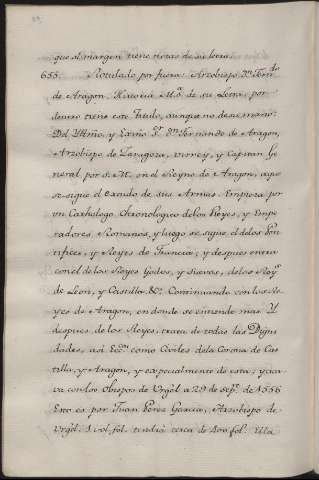 que al margen tiene notas de su letra
655. Rotulado por fuera: Arzobispo Dn. Fern.do
de Aragon. Historia M.a de su Letra: por
dentro tiene este Titulo, aunque no de su mano:
Del Yllmo, y Exmo Sr. Dn. Fernando de Aragon,
Arzobispo de Zaragoza, virrey, y Capitan Ge
neral por S. M. en el Reyno de Aragon, aqui
se sigue el escudo de sus Armas. Empieza por
un Cathalogo Chronologico de los Reyes, y Empe
radores Romanos, y luego se sigue el delos Pon
tifices, y Reyes de Francia; y despues entra
con el de los Reyes Godos, y Suevos, de los Rey.s
de Leon, y Castilla &c. Continuando con los Re
yes de Aragon, en donde se extiende mas. Y
despues de los Reyes, trata de todas las Digni
dades, asi Ecc.as como Civiles dela Corona de Cas
tilla, y Aragon, y especialmente de esta; y cia
va con los Obispos de Urgèl a 29 de Sep.e de 1556
Esto es por Juan Perez Garcia, Arzobispo de
Urgèl. 1. vol. fol. tendrá cerca de 400 fol. Ella